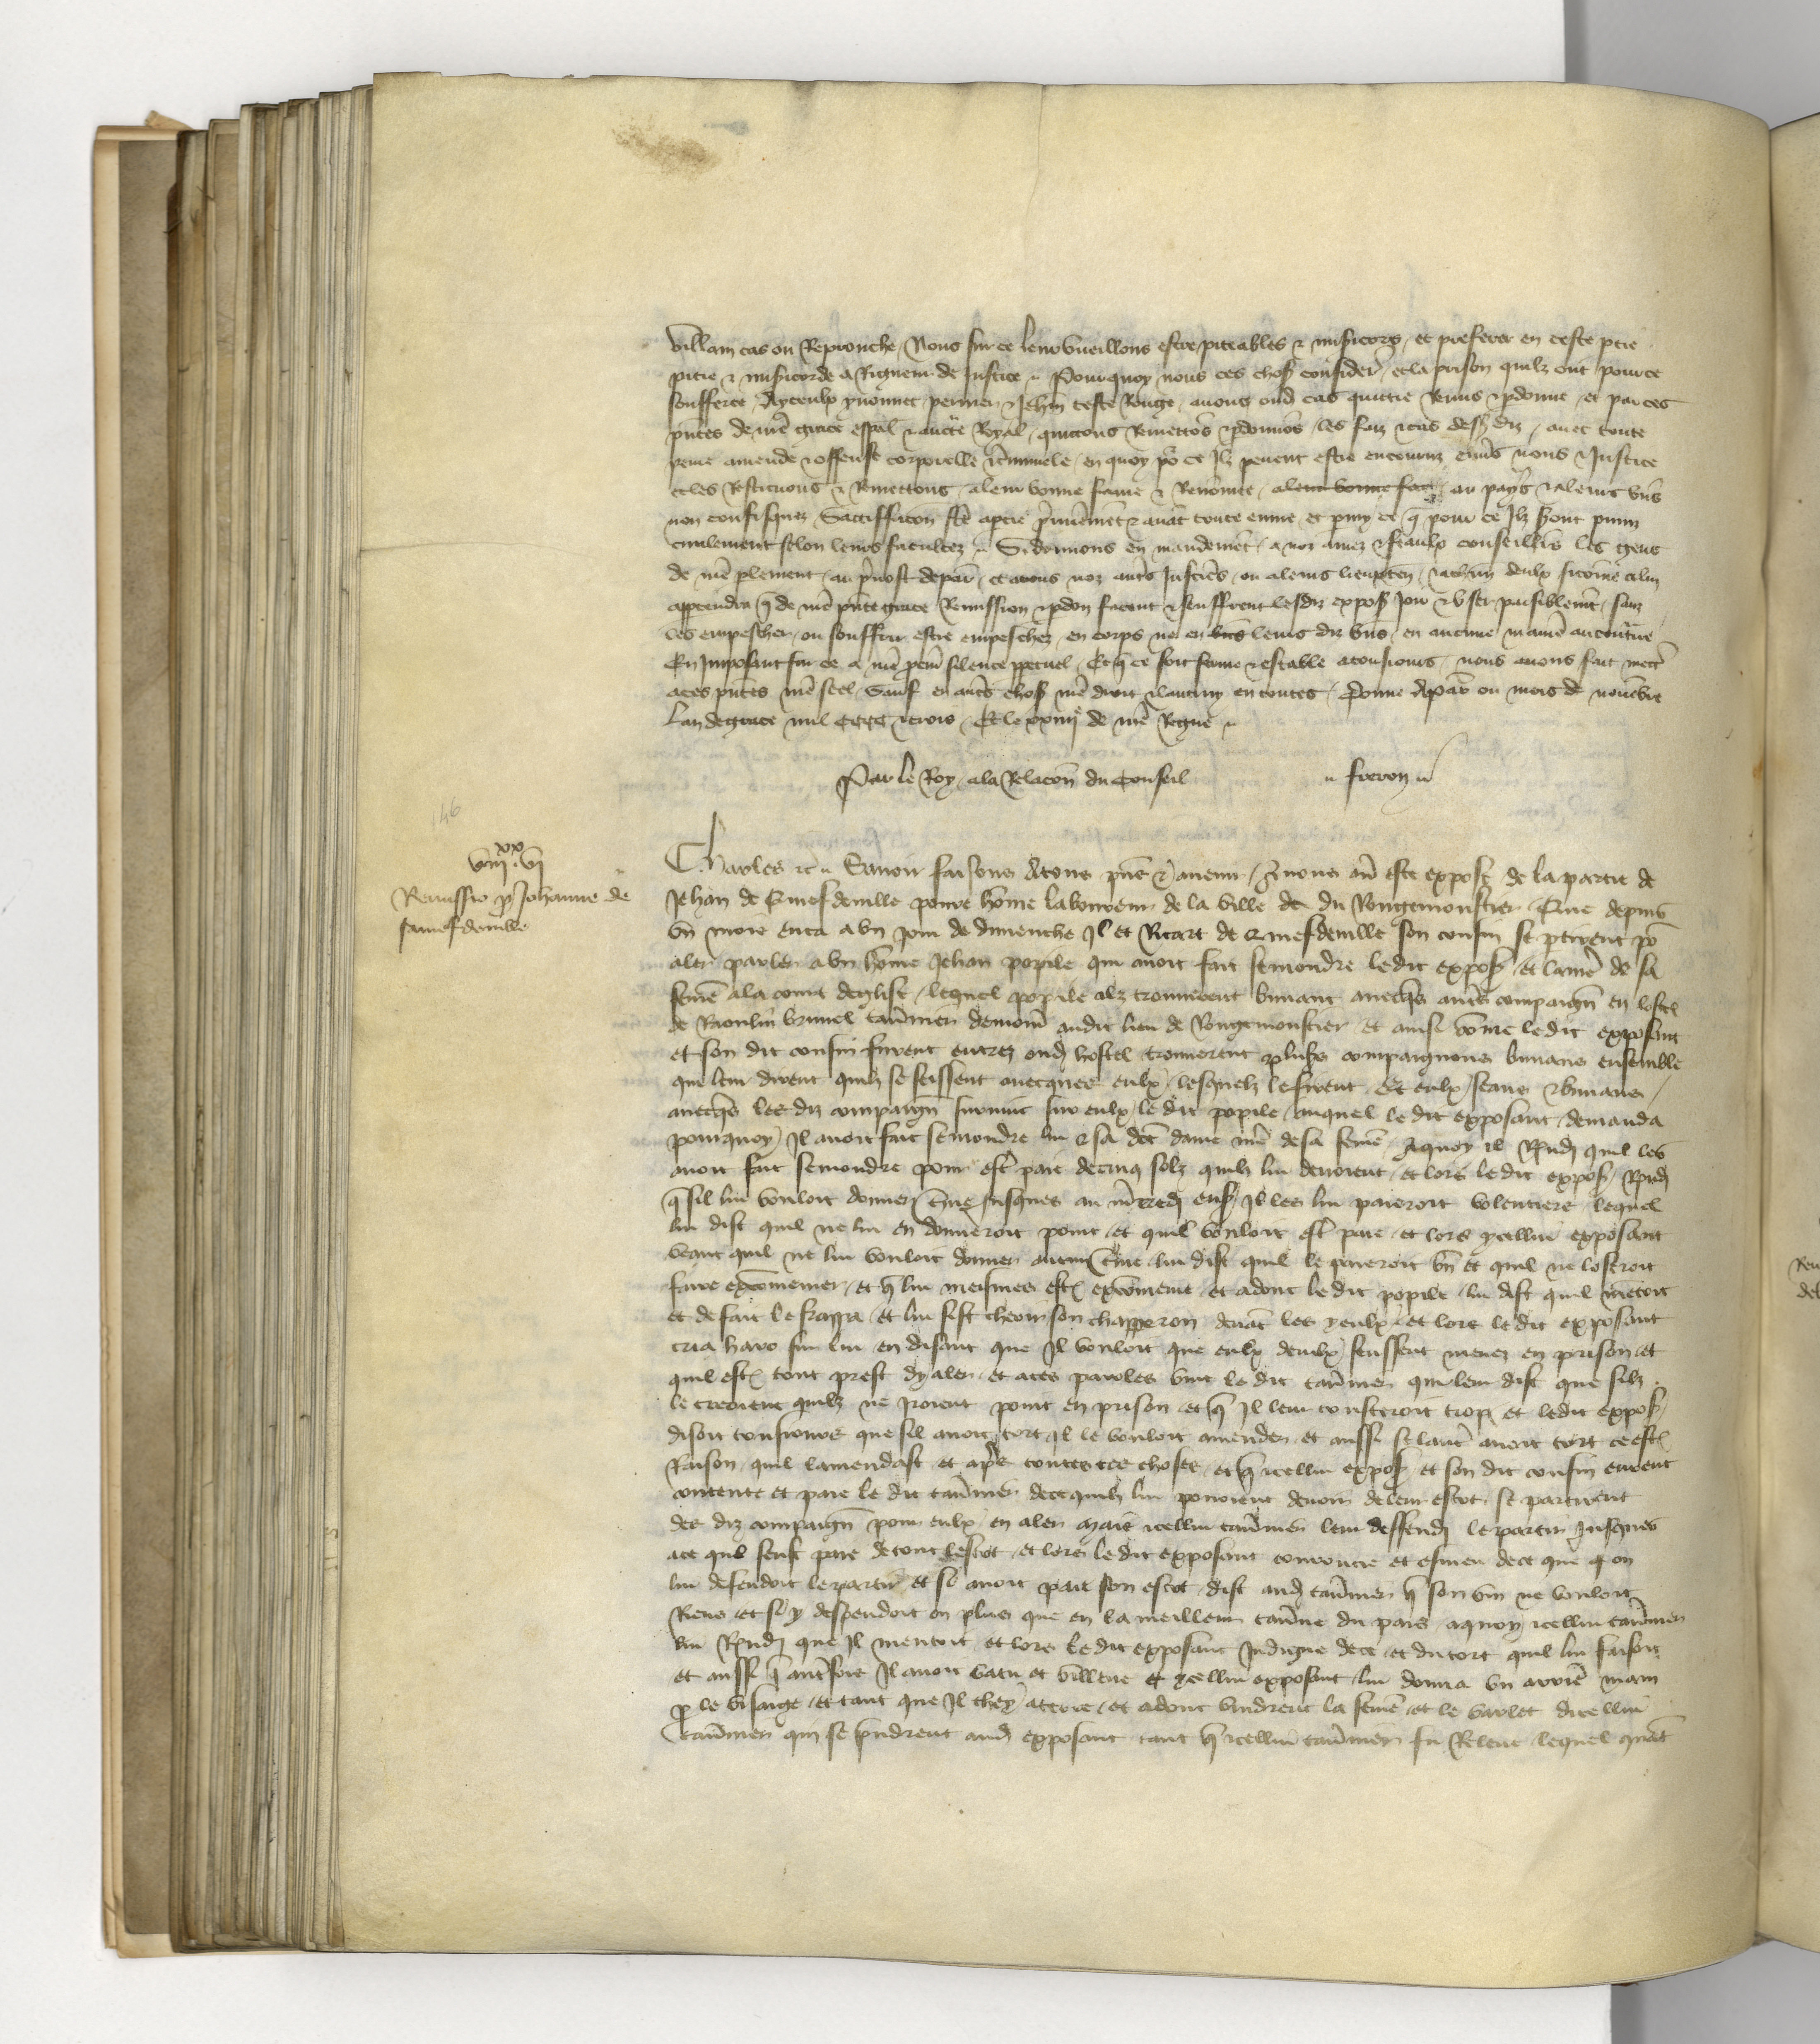 villain cas ou Reprouche / Nous sur ce leur vueillons estre piteables & mis'icors / et preferer en ceste p'tie
pitie & mis'icorde a Rigueur de Justice Pourquoy nous ces chos' consider' / et la prison quilz ont pour ce
soufferte / Ayceulx yvonnet perrier & Jeh'n teste Rouge / avons oud' cas quittie Remis & p'donne / et par ces
p'ntes de n're grace esp'al & auc'te Royal / quittons Remettos & p'donnos / les faiz & cas dess' diz / avec toute
peine amende & offense corporelle & c'iminele / en quoy po' ce Ilz pevent estre encouruz env's nous & Justice
et les Restituons & Remettons / a leur bonne fame & Renomee / a leur bonne fa / au pays & a leurs b'ns
non confisquez / Sattiffacon f'te a p'tie p'mierem't & avat toute euvre / et p'my ce q' pour ce Ilz seront puniz
civilement selon leurs facultez Si donnons en mandem't / a noz amez & feaulx conseill'rs les gens
de n're p'lement / au p'vost de par' / et a tous noz aut's Justic'rs / ou a leurs lieuxten' / & a ch'un deulx si come a lui
app'tendra q' de n're p'nte grace Remission & p'don facent & seuffrent lesdiz expos' Joir & user paisiblem't / sanz
les empescher / ou souffrir estre empeschez / en corps ne en b'ns leurs diz b'ns / en aucune maie' au cont'ire
En Imposant sur ce a n're p'cur' silence p'petuel / Et q' ce soit ferme & estable a tousjours / nous avons fait mett'
a ces p'ntes n're seel / Sauf en aut's chos' n're droit & lautruy en toutes / Donne A par' ou mois de novebre
Lan de grace mil CCCC & trois / Et le xxiiije de n're Regne
Par le Roy / a la Relacon du Conseil freron
viijxx vj
Remissio p' Johanne de
samesdeville
Charles &c Savoir faisons A tous p'ns & avenir / q' nous av' este expose de la partie de
Jehan de Samesdeville povre home laboureur de la ville de du Rougemonstier / Que depuis
un mois enca a un jour de dimenche Il et Ricart de Samesdeville son cousin se p'tirent po'
aler parler a un home Jehan popile qui avoit fait semondre ledit expos' et la me' de sa
feme a la court deglise / lequel popile ilz trouverent buvant avecq's aut's compaign' en lostel
de Raoulin brunel tav'nier demour' audit lieu de Rougemonstier et ainsi come ledit exposant
et son dit cousin furent entrez oud' hostel trouverent plus's compaignons buvans ensemble
qui leur dirent quilz se seissent avecques eulx / lesquelz le firent et eulx seans & buvans /
avecq's les diz compaign' survint sur eulx ledit popile / auquel ledit exposant demanda
pourquoy Il avoit fait semondre lui & sa d'te dame me' de sa feme / A quoy il Resp'd' quil les
avoit fait semondre pour est' paie de cinq solz quilz lui devoient / et lors ledit expos' Resp'd'
q' sil lui vouloit donner t'me jusques au m'cred' ens' Il les lui paieroit volentiers / lequel
lui dist quil ne lui en donneroit point / et quil vouloit est' paie / et lors ycellui exposant
veant quil ne lui vouloit donner aucun t'me lui dist quil le paieroit b'n et quil ne loseroit
faire excomenier / et q' lui meismes est' excomenie / et adonc ledit popile lui dist quil mentoit
et de fait le frappa / et lui fist cheoir son chapperon devat les yeulx / et lors ledit exposant
cria haro sur lui en disant que Il vouloit que eulx deulx feussent menez en prison / et
quil est' tout prest dy aler / et a ces paroles vint ledit tav'nier qui leur dist que silz
le creoient quilz ne Iroient point en prison et q' Il leur cousteroit trop / et ledit expos'
disoit tousjours que sil avoit tort Il le vouloit amender / et aussi se laut' avoit tort ce est'
Raison quil lamendast / et apr's toutes ces choses / et q' icellui expos' et son dit cousin eurent
contente et paie ledit tav'nier de ce quilz lui povoient devoir de leur escot se partirent
des diz compaign' pour eulx en aler / Mais icellui tav'nier leur deffend' le partir Jusques
a ce quil feust paie de tout lescot / et lors ledit exposant courroucie et esmeu de ce que q on
lui defendoit le partir et si avoit paie son escot / dist aud' tav'nier q' son vin ne vouloit
Riens / et si y despendoit on plus que en la meilleur tav'ne du pais / a quoy icellui tav'nier
lui Resp'd' que Il mentoit et lors ledit exposant Indigne de ce et du tort quil lui faisoit
et aussi q' aut'fois Il avoit batu et villene & ycellui exposant / lui donna un arrie' main
p' le visaige / et tant que Il chey a terre / et adonc vindrent la feme et le varlet dicellui
tav'nier qui se p'ndrent aud' exposant tant q' icellui tav'nier fu Releve lequel quat